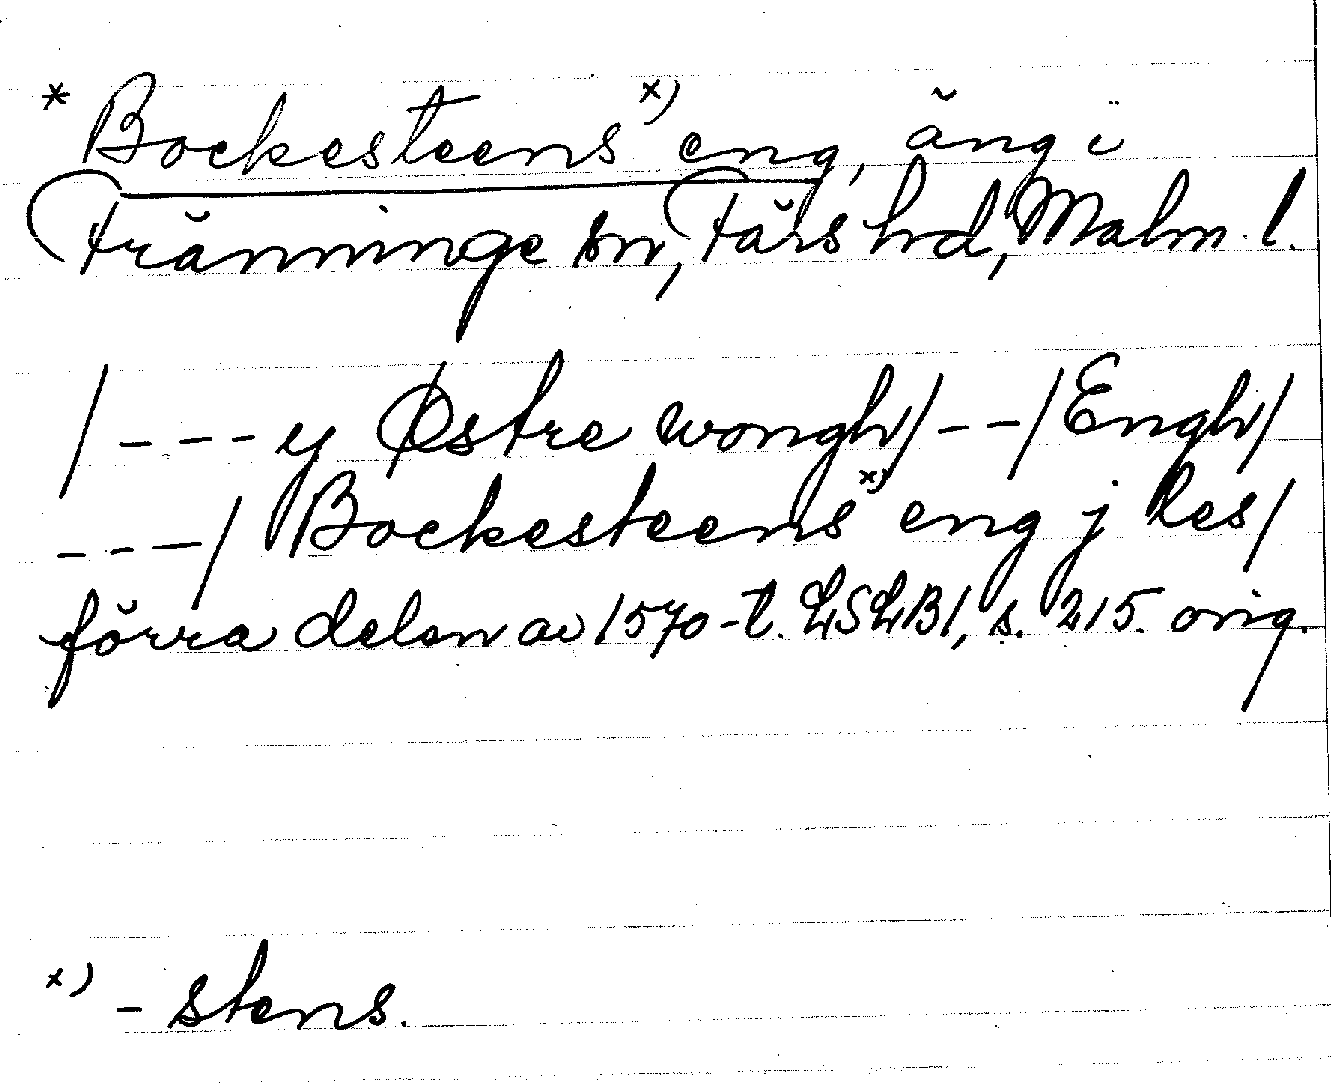 * Bockesteens x) eng, äng i
Tränninge sn, Färs hd, Malm. l.
/ - - - y Østre wongh / - - / Engh /
- - - / Bockesteens x) eng j Res /
förra delen av 1570-t. LSLB1, s. 215. orig.
x) - stens.